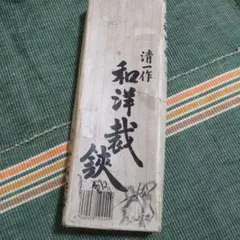 清一作
和洋裁鋏